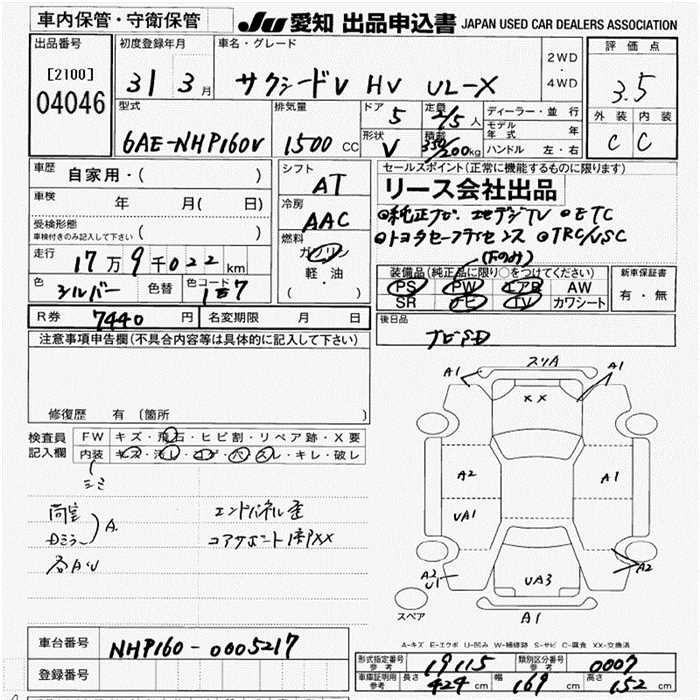 車内保管・守衛保管
JU 愛知 出品申込書 JAPAN USED CAR DEALERS ASSOCIATION
出品番号
[2100]
04046
初度登録年月
31 3月
車名・グレード
サクシードV HV UL-X
2WD
・
4WD
評価点
3.5
外装 内装
C C
型式
6AE-NHP160V
排気量
1500 CC
ドア 5
形状 V
定員 2/5人
積載 350/200kg
ディーラー・並行
モデル年式 年
ハンドル 左・右
車歴 自家用・( )
車検 年 月( 日)
受検形態
車検付きのみ記入して下さい ( )
走行 17万9千022km
色 シルバー 色替 色コード 1E7
シフト AT
冷房 AAC
燃料
ガソリン
軽・油
( )
セールスポイント(正常に機能するものに限ります)
リース会社出品
◎純正ナビ フルセグTV ◎ETC
◎トヨタセーフティセンス ◎TRC/VSC
(Fのみ)
装備品(純正品に限り○をつけてください)
PS PW エアB AW
SR ナビ TV カワシート
新車保証書
有・無
後日品
ナビSD
R券 7440円 名変期限 月 日
注意事項申告欄(不具合内容等は具体的に記入して下さい)
修復歴 有 (箇所
検査員記入欄
FW キズ・飛石・ヒビ割・リペア跡・X要
内装 キズ・汚レ・コゲ・穴・スレ・キレ・破レ
シミ
荷室
Dミラー ) A.
各AU
エンドパネル歪
コアサポート1部XX
A1 スリA A1
XX
A2 A1
UA1
A2
U1 UA3 A2
A1
スペア
A-キズ E-エクボ U-凹み W-補修跡 S-サビ C-腐食 XX-交換済
車台番号 NHP160-0005217
登録番号
形式指定番号 参考 19115 類別区分番号 参考 0007
車庫証明用 参考 長さ 424cm 幅 169cm 高さ 152cm